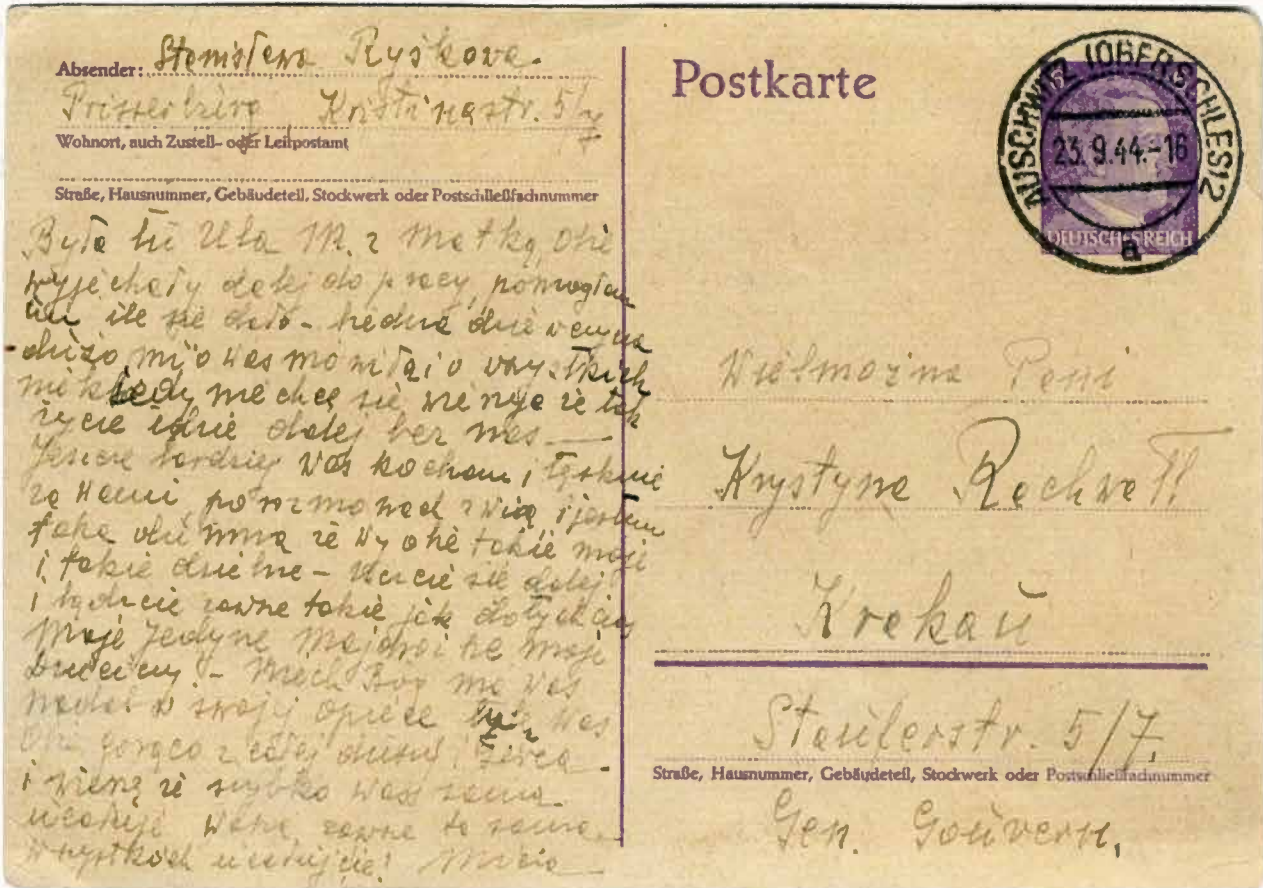 Absender: Stanisława Ryśkova.
Kristinastr. 5/7
Wohnort, auch Zustell- oder Leitpostamt
Straße, Hausnummer, Gebäudeteil, Stockwerk oder Postschließfachnummer
Była tu Ula M. z Matką, obie
wyjechały dalej do pracy, pomogłam
im ile się dało -
dużo mi o was mówiła i o wszystkich
się że tak
życie idzie dalej bez was
Jeszcze bardziej Was kocham i tęsknię
za Wami, i jestem
taka dumna że Wy obie takie moje
i takie dzielne - dalej
i bądźcie zawsze takie jak dotychczas
Moje Jedyne moje
- Niech Bóg ma Was
nadal w swojej opiece Was
gorąco z całej duszy i serca
i wierzę że szybko was
zawsze ta sama
wszystkich ucałujcie!
Postkarte
AUSCHWITZ (OBERSCHLES) 2
23.9.44.-16
a
DEUTSCHES REICH
Wielmożna Pani
Krystyna Rachwał!
Krakau
5/7.
Straße, Hausnummer, Gebäudeteil, Stockwerk oder Postschließfachnummer
Gen. Gouvern.